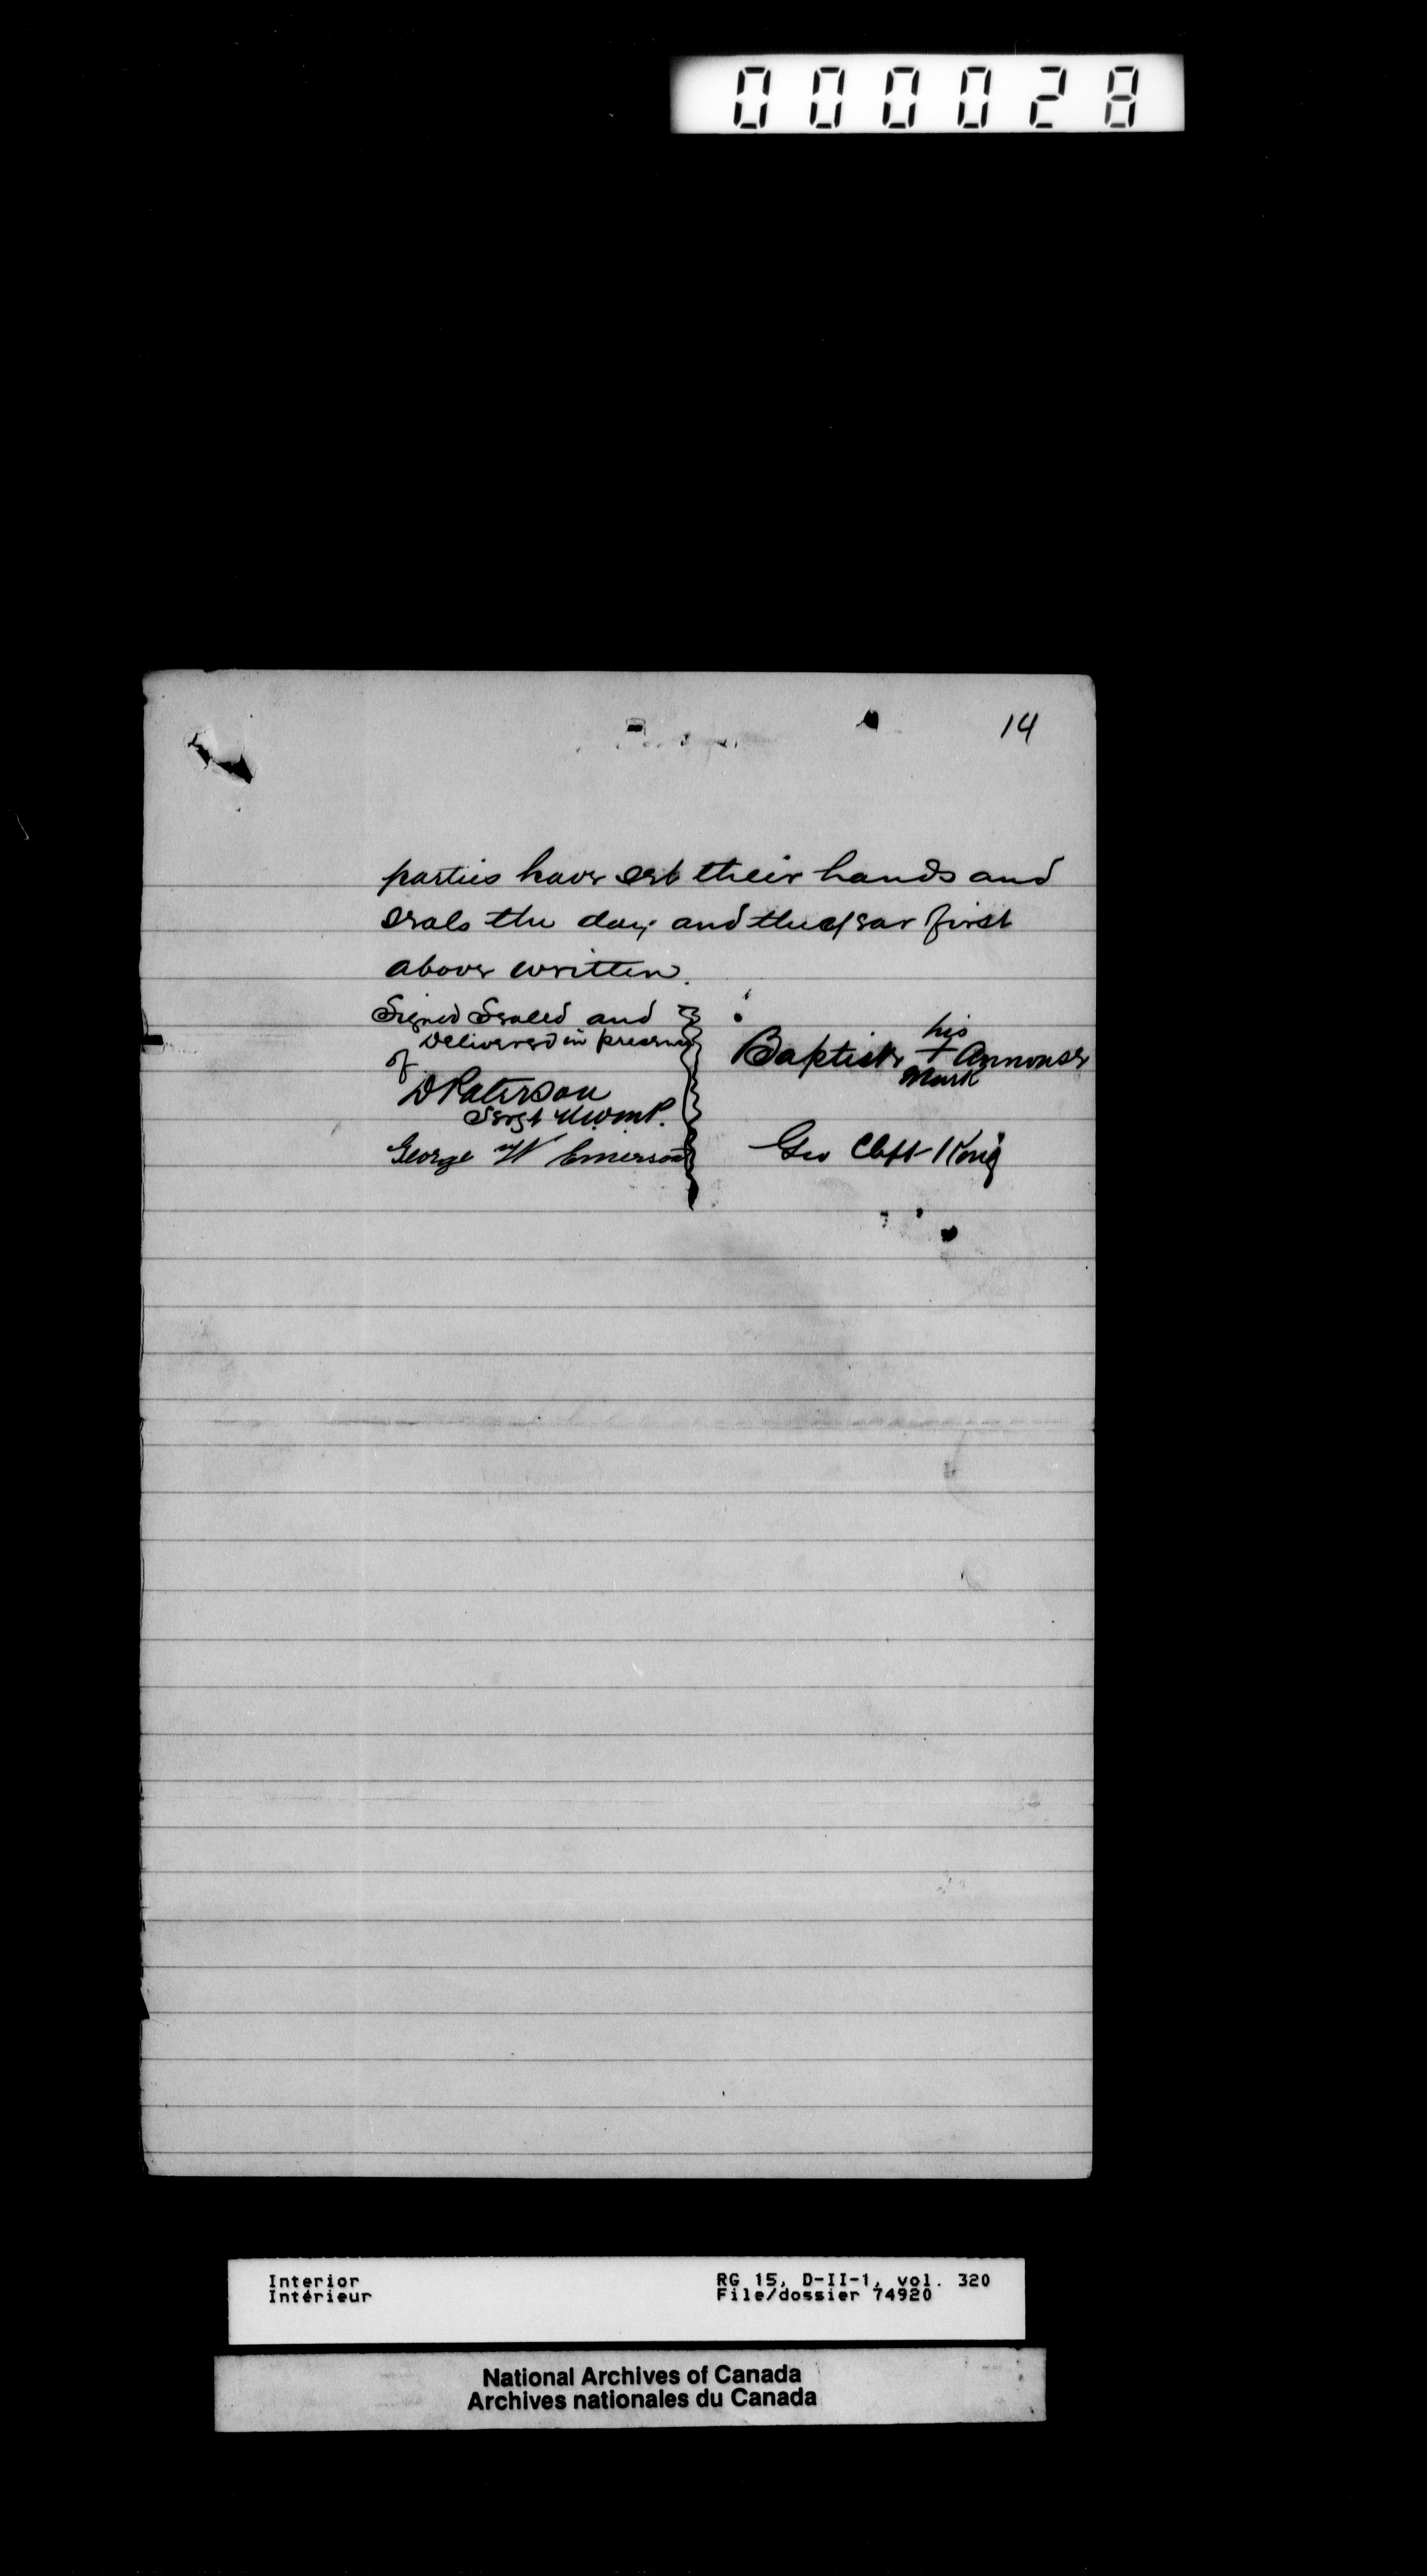 000028
14
parties have set their hands and
seals the day and the year first
above written.
Signed Sealed and
Delivered in presence
of
D Paterson
Sergt N.W.M.P.
George W Emerson
his
Baptiste + Annouse
mark
Geo Clift King
Interior
Intérieur
RG 15, D-II-1, vol. 320
File/dossier 74920
National Archives of Canada
Archives nationales du Canada